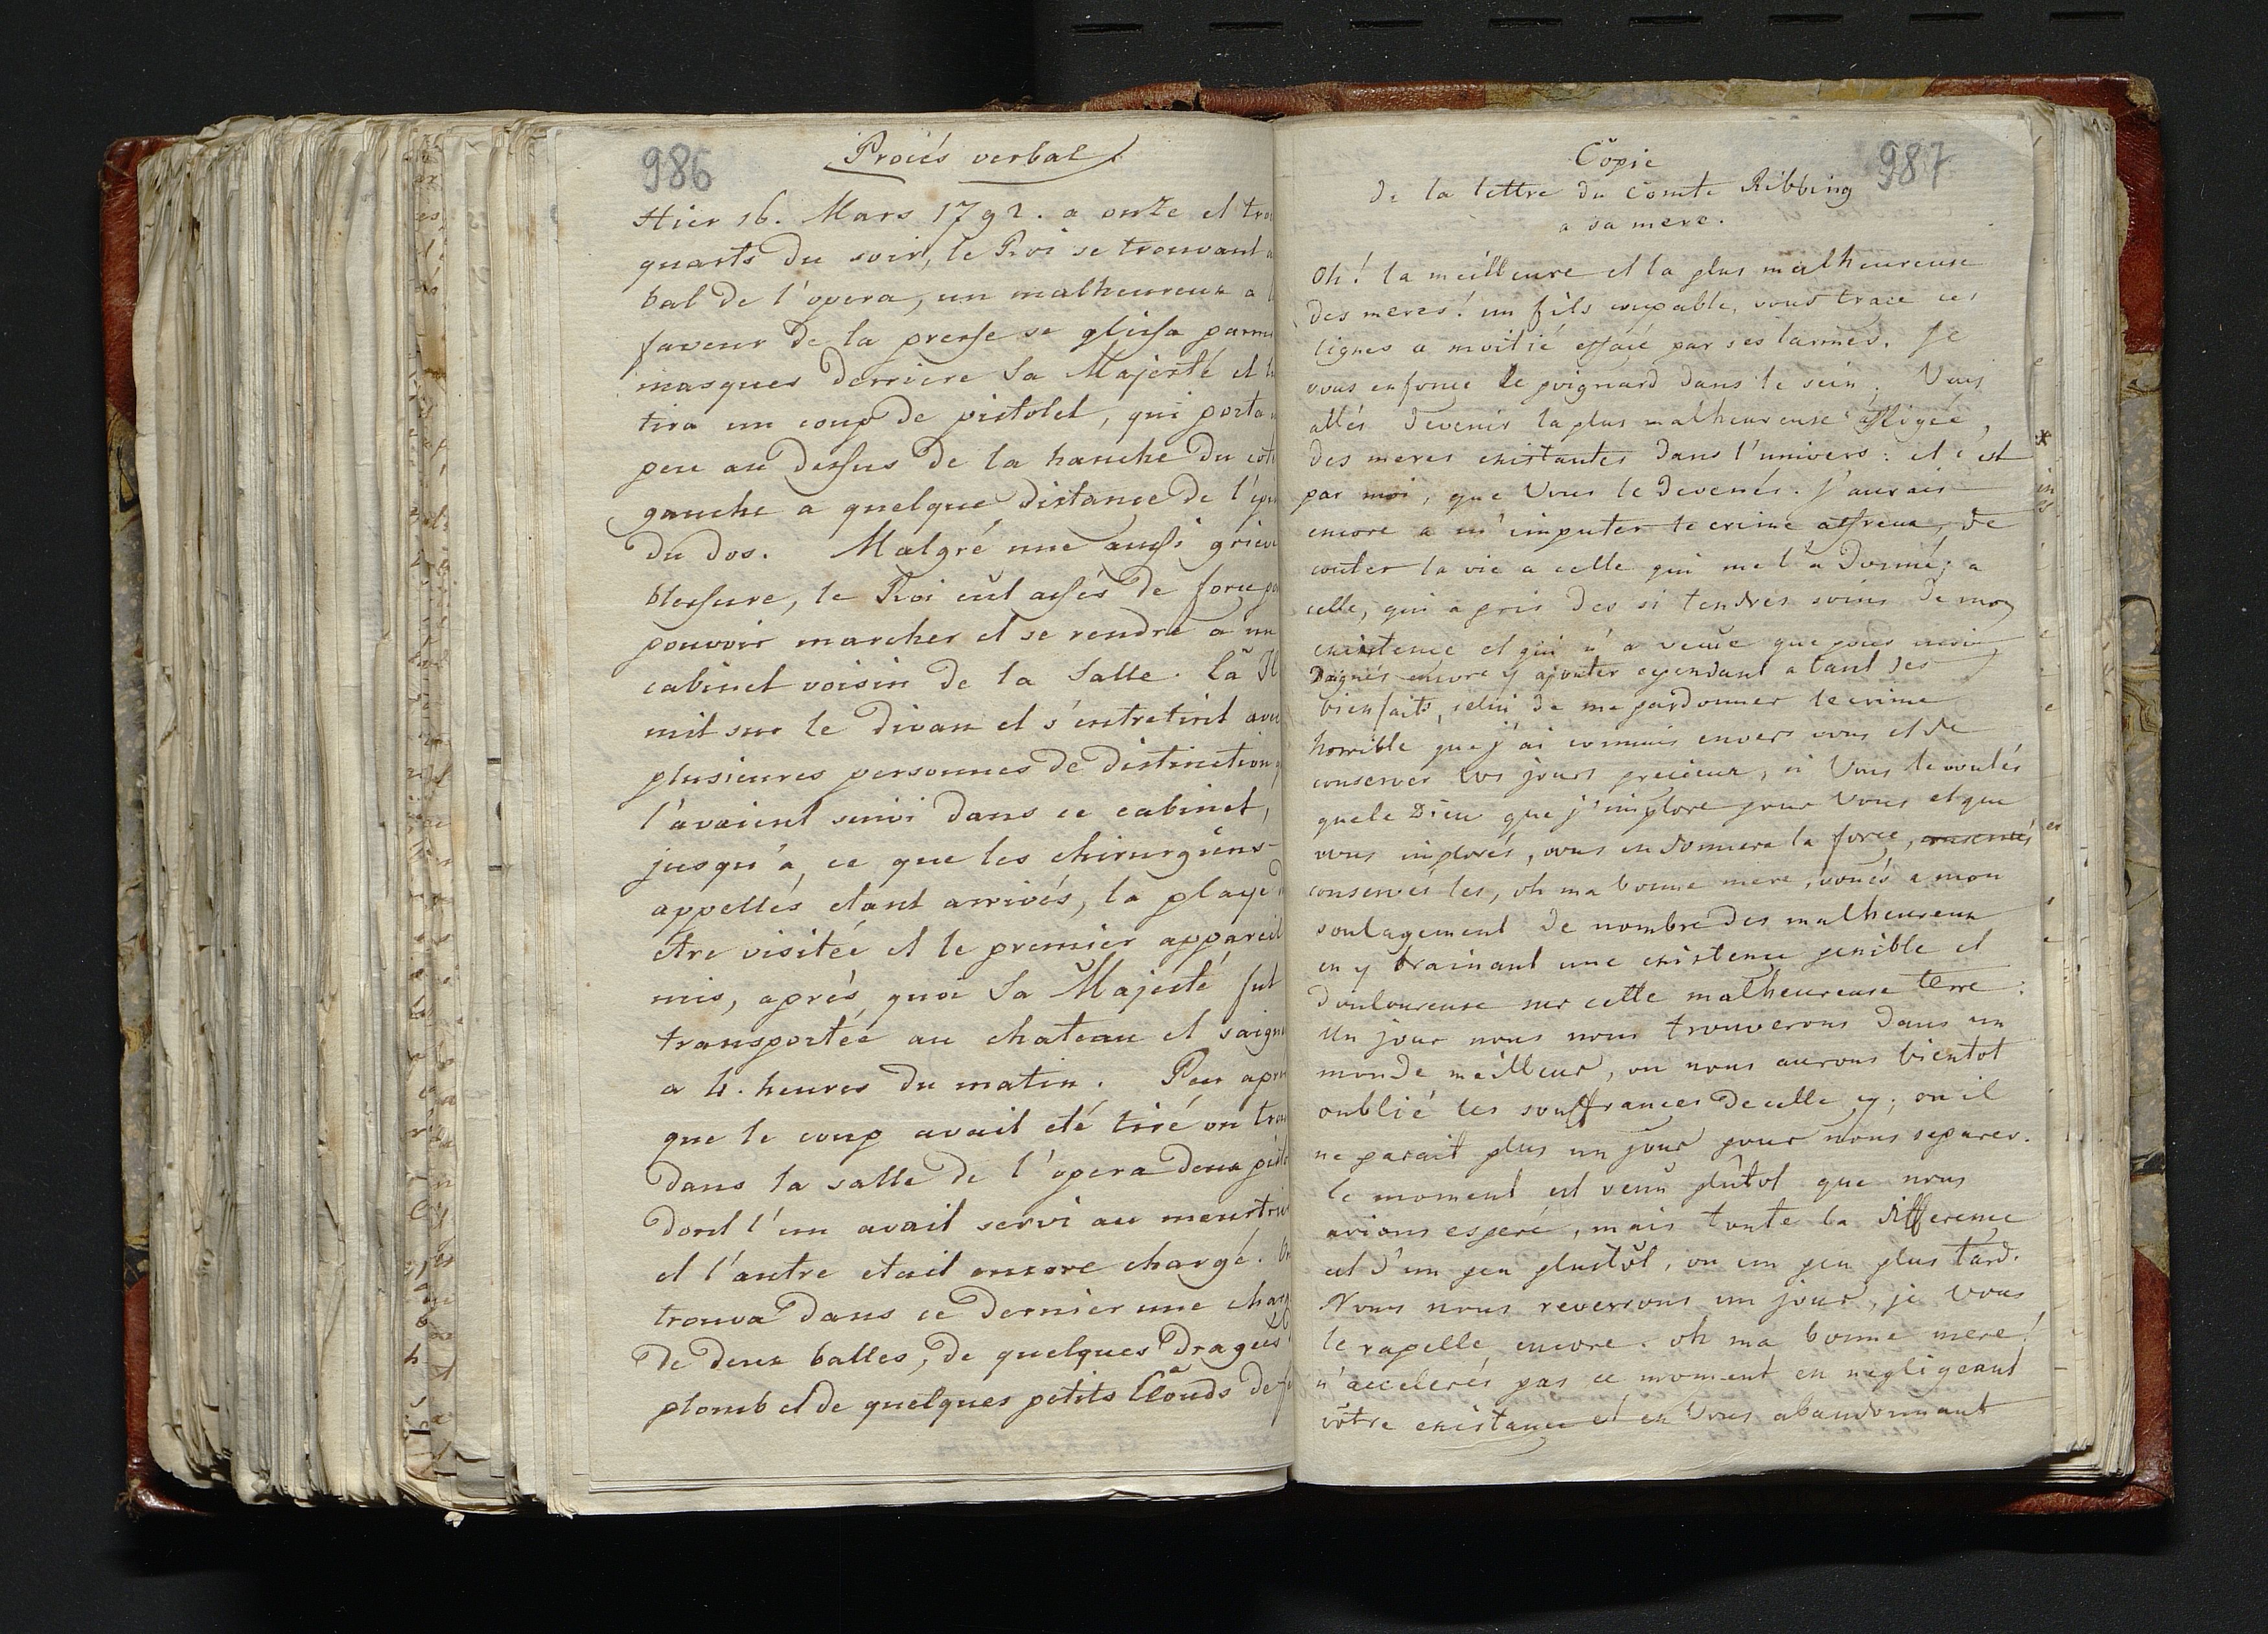 986
Procés verbal
Hier 16. Mars 1792. a onze et
quarts du soir, le Roi se trouvant
bal de l'opera, un malheureux a
faveur de la presse se glissa
masques derriere Sa Majesté et
tira un coup de pistolet, qui porta
peu au dessus de la hanche du
gauche a quelque distance de
du dos. Malgré une aussi
blessure, le Roi eut assés de force
pouvoir marcher et se rendre a un
cabinet voisin de la Salle. Là Il
mit sur le divan et s'entretint
plusieures personnes de distinction
l'avaient suivi dans ce cabinet,
jusqu'a, ce que les chirurgiens
appellés etant arrivés, la playe
etre visitée et le premier appareil
mis, aprés quoi Sa Majesté fut
transportée au chateau et
a 4. heures du matin. Peu
que le coup avait eté tiré on
dans la salle de l'opera deux
dont l'un avait servi au
et l'autre etait encore chargé.
trouva dans ce dernier une
de deux balles, de quelques dragées
plomb et de quelques petits Clouds de
987
Copie
de la lettre du Comte Ribbing
a sa mere.
Oh! la meilleure et la plus malheureuse
des meres! un fils coupable, vous trace ces
lignes a moitié effacé par ses larmes. Je
vous enfonce le poignard dans le sein. Vous
allés devenir la plus malheureuse affligée,
des meres existantes dans l'univers: et c'est
par moi, que Vous le devenés. J'aurais
encore a m'imputer le crime affreux, de
couter la vie a celle qui me l'a donné; a
celle, qui a pris des si tendres soins de mon
existence et qui n'a vecue que pour moi
Daignés encore y ajouter cependant a tant des
bienfaits, celui de me pardonner le crime
horrible que j'ai commis envers vous et de
conserver vos jours precieux, si Vous le voulés
que le Dieu que j'implore pour Vous et que
vous implorés, vous en donnera la force,
conservés les, oh ma bonne mere, voués a mon
soulagement de nombre des malheureux
en y trainant une existence penible et
douloureuse sur cette malheureuse terre.
Un jour nous nous trouverons dans un
monde meilleur, ou nous aurons bientot
oublié les souffrances de celle cy; ou il
ne parait plus un jour pour nous separer.
le moment est venu plutot que nous
avions esperé, mais toute la difference
est d'un peu plustôt, ou un peu plus tard.
Nous nous reverrons un jour, je vous
le rapelle encore. oh ma bonne mere!
n'accelerés pas ce moment en negligeant
vôtre existance et en Vous abandonnant